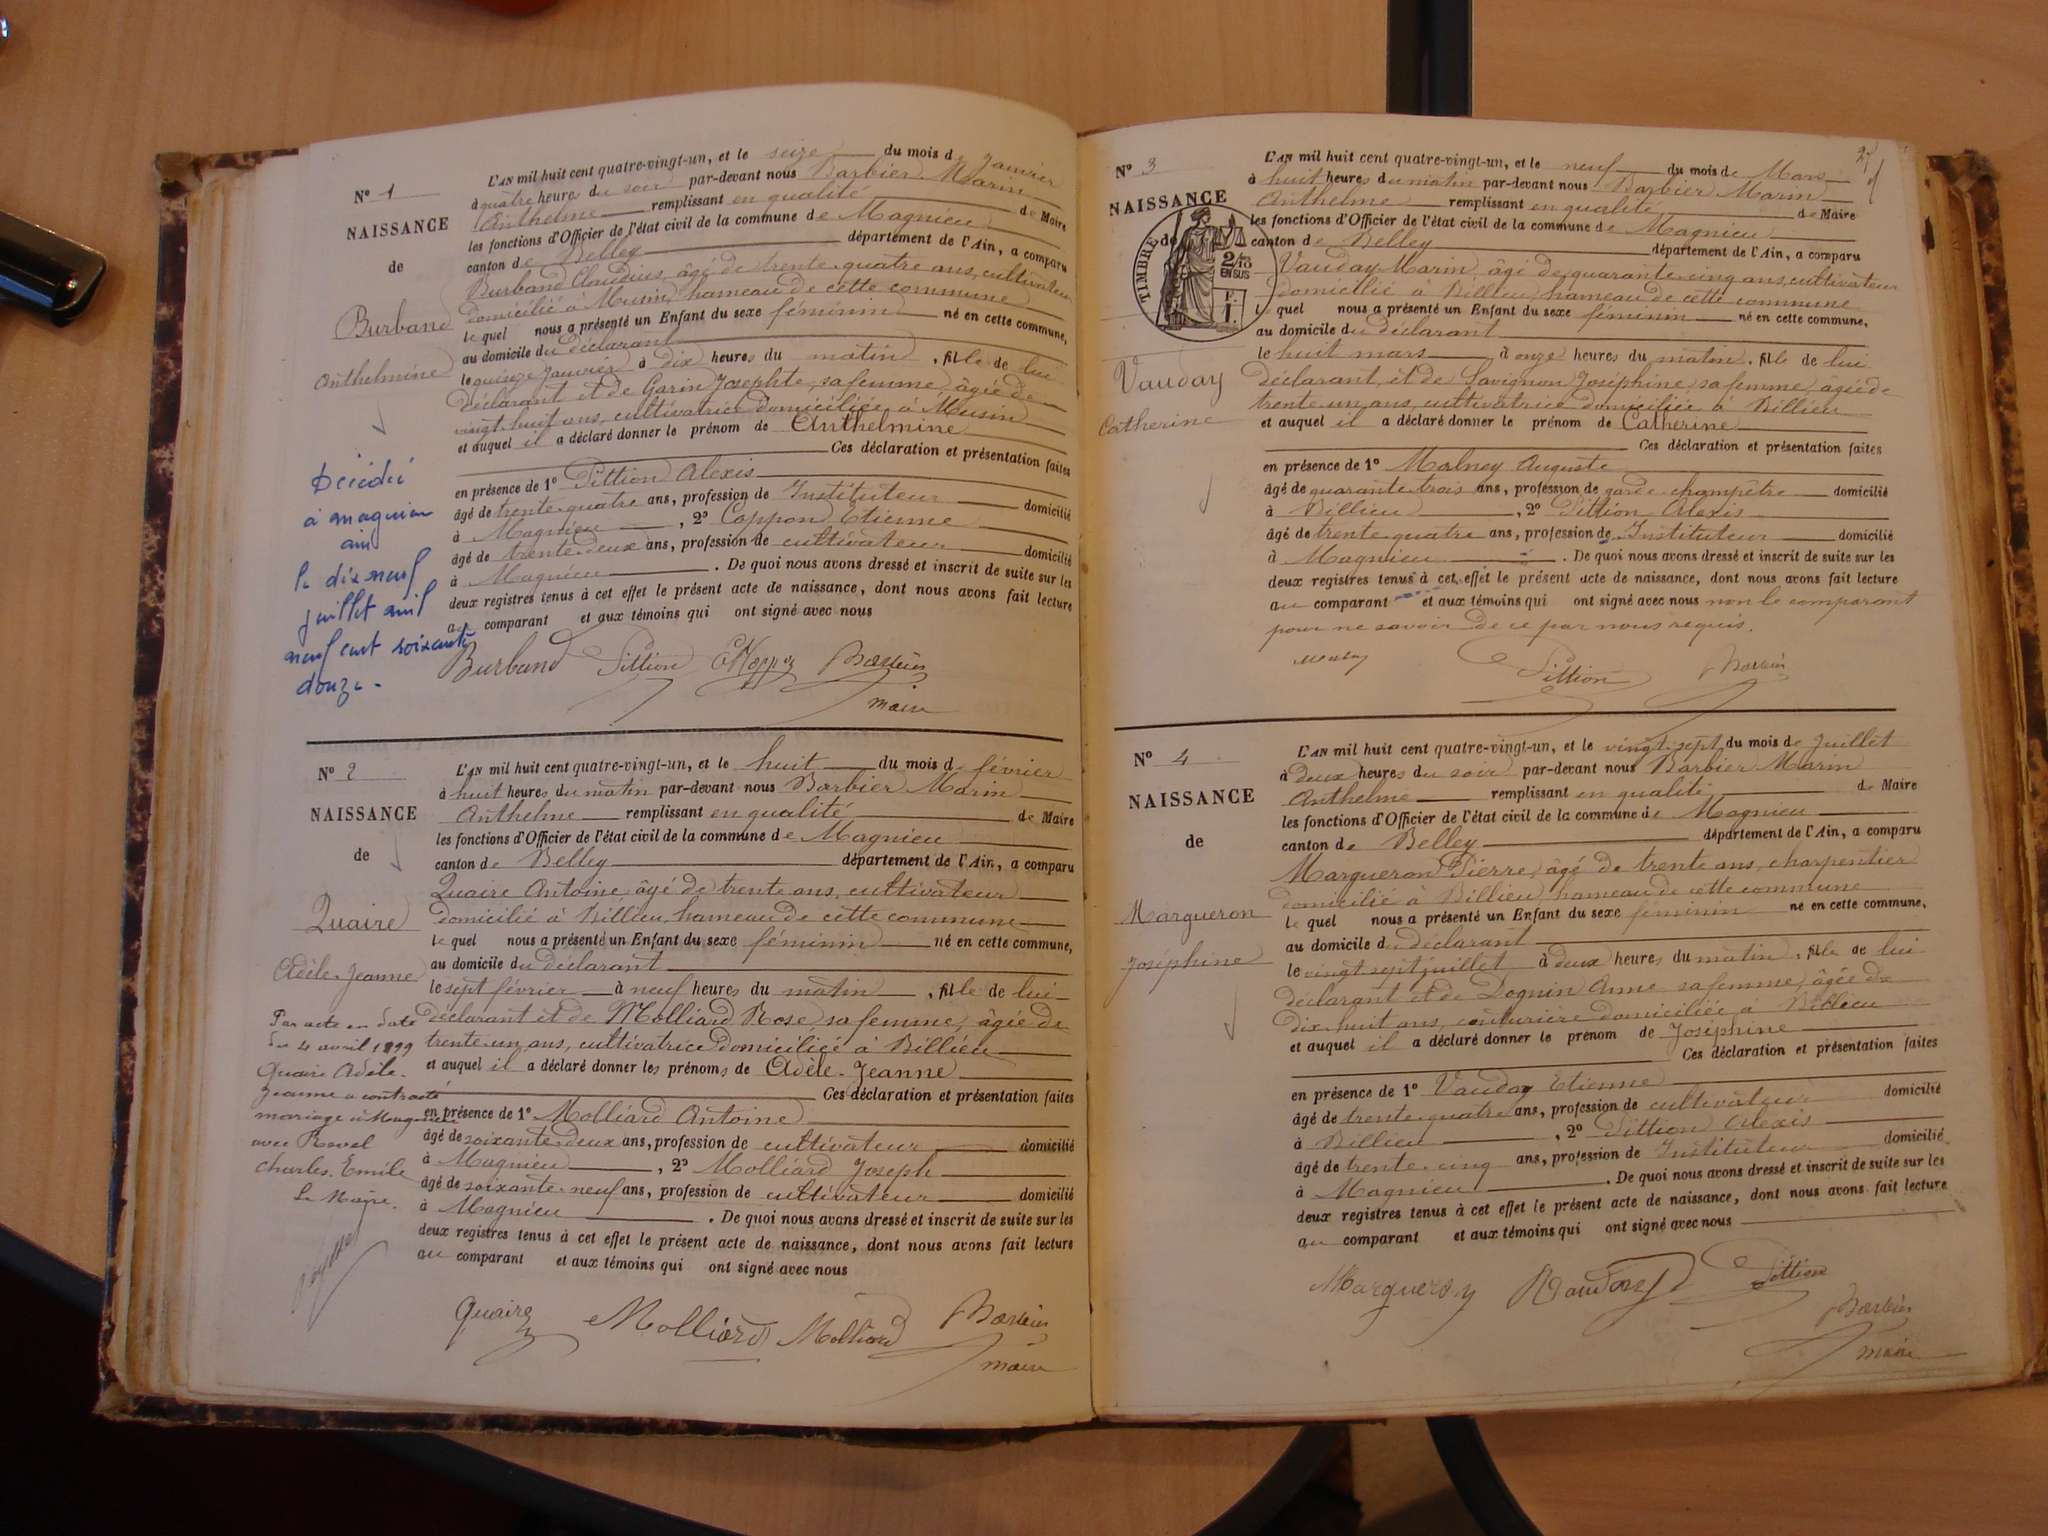 N° 1
NAISSANCE
de
Burband
Anthelmine
Décédée
à magnieu
ain
le dix neuf
juillet mil
neuf cent soixante
douze.
L'AN mil huit cent quatre-vingt-un, et le seize du mois de janvier
à quatre heures du soir par-devant nous Barbier Marin
Anthelme remplissant en qualité de Maire
les fonctions d'Officier de l'état civil de la commune de Magnieu
canton de Belley département de l'Ain, a comparu
Burband Claudius, âgé de trente-quatre ans, cultivateur
domicilié à Musin, hameau de cette commune
le quel nous a présenté un Enfant du sexe féminin né en cette commune,
au domicile du déclarant
le quinze janvier à dix heures du matin, fille de lui
déclarant et de Garin Josephte, sa femme, âgée de
vingt-huit ans, cultivatrice domiciliée à Musin
et auquel il a déclaré donner le prénom de Anthelmine
Ces déclaration et présentation faites
en présence de 1° Pittion Alexis
âgé de trente-quatre ans, profession de Instituteur domicilié
à Magnieu, 2° Coppon Etienne
âgé de trente-deux ans, profession de cultivateur domicilié
à Magnieu. De quoi nous avons dressé et inscrit de suite sur les
deux registres tenus à cet effet le présent acte de naissance, dont nous avons fait lecture
au comparant et aux témoins qui ont signé avec nous
Burband Pittion Barbier
maire
N° 2
NAISSANCE
de
Quaire
Adèle-Jeanne
Par acte en date
du 4 avril 1899
Quaire Adèle-
Jeanne a contracté
mariage à Magnieu
avec Revel
Charles-Emile
Le Maire.
L'AN mil huit cent quatre-vingt-un, et le huit du mois de février
à huit heures du matin par-devant nous Barbier Marin
Anthelme remplissant en qualité de Maire
les fonctions d'Officier de l'état civil de la commune de Magnieu
canton de Belley département de l'Ain, a comparu
Quaire Antoine, âgé de trente ans, cultivateur
domicilié à Billieu, hameau de cette commune
le quel nous a présenté un Enfant du sexe féminin né en cette commune,
au domicile du déclarant
le sept février à neuf heures du matin, fille de lui
déclarant et de Molliard Rose, sa femme, âgée de
trente-un ans, cultivatrice domiciliée à Billieu
et auquel il a déclaré donner les prénoms de Adèle-Jeanne
Ces déclaration et présentation faites
en présence de 1° Molliard Antoine
âgé de soixante-deux ans, profession de cultivateur domicilié
à Magnieu, 2° Molliard Joseph
âgé de soixante-neuf ans, profession de cultivateur domicilié
à Magnieu. De quoi nous avons dressé et inscrit de suite sur les
deux registres tenus à cet effet le présent acte de naissance, dont nous avons fait lecture
au comparant et aux témoins qui ont signé avec nous
Quaire Molliard Molliard Barbier
maire
N° 3
NAISSANCE
de
TIMBRE
2/10
EN SUS
Vauday
Catherine
L'AN mil huit cent quatre-vingt-un, et le neuf du mois de Mars
à huit heures du matin par-devant nous Barbier Marin
Anthelme remplissant en qualité de Maire
les fonctions d'Officier de l'état civil de la commune de Magnieu
canton de Belley département de l'Ain, a comparu
Vauday Marin, âgé de quarante-cinq ans, cultivateur
domicilié à Billieu, hameau de cette commune
le quel nous a présenté un Enfant du sexe féminin né en cette commune,
au domicile du déclarant
le huit mars à onze heures du matin, fille de lui
déclarant, et de Savignon Joséphine, sa femme, âgée de
trente-un ans, cultivatrice domiciliée à Billieu
et auquel il a déclaré donner le prénom de Catherine
Ces déclaration et présentation faites
en présence de 1° Malney Auguste
âgé de quarante-trois ans, profession de garde-champêtre domicilié
à Billieu, 2° Pittion Alexis
âgé de trente-quatre ans, profession de Instituteur domicilié
à Magnieu. De quoi nous avons dressé et inscrit de suite sur les
deux registres tenus à cet effet le présent acte de naissance, dont nous avons fait lecture
au comparant et aux témoins qui ont signé avec nous non le comparant
pour ne savoir de ce par nous requis.
Pittion Barbier
N° 4
NAISSANCE
de
Margueron
Joséphine
L'AN mil huit cent quatre-vingt-un, et le vingt-sept du mois de juillet
à deux heures du soir par-devant nous Barbier Marin
Anthelme remplissant en qualité de Maire
les fonctions d'Officier de l'état civil de la commune de Magnieu
canton de Belley département de l'Ain, a comparu
Margueron Pierre, âgé de trente ans, charpentier
domicilié à Billieu, hameau de cette commune
le quel nous a présenté un Enfant du sexe féminin né en cette commune,
au domicile du déclarant
le vingt-sept juillet à deux heures du matin, fille de lui
déclarant et de Dognin Anne sa femme, âgée de
dix-huit ans, couturière domiciliée à Billieu
et auquel il a déclaré donner le prénom de Joséphine
Ces déclaration et présentation faites
en présence de 1° Vauday Etienne
âgé de trente-quatre ans, profession de cultivateur domicilié
à Billieu, 2° Pittion Alexis
âgé de trente-cinq ans, profession de Instituteur domicilié
à Magnieu. De quoi nous avons dressé et inscrit de suite sur les
deux registres tenus à cet effet le présent acte de naissance, dont nous avons fait lecture
au comparant et aux témoins qui ont signé avec nous
Margueron Vauday Pittion
Barbier
maire